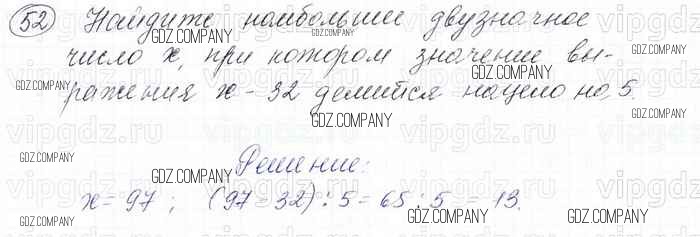 52 Найдите наибольшее двузначное
число x, при котором значение вы-
ражения x - 32 делится нацело на 5.
Решение:
x = 97 ; (97 - 32) : 5 = 65 : 5 = 13.
GDZ.COMPANY
GDZ.COMPANY
GDZ.COMPANY
GDZ.COMPANY
GDZ.COMPANY
GDZ.COMPANY
GDZ.COMPANY
GDZ.COMPANY
GDZ.COMPANY
GDZ.COMPANY
vipgdz.ru